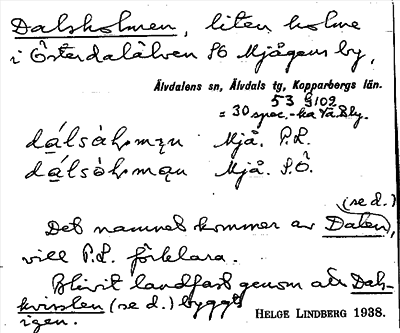 Dalsholmen, liten holme
i Österdalälven SO Mjågens by,
Älvdalens sn, Älvdals tg, Kopparbergs län.
53 9102
= 30 spec.-ka Va. Bly.
Mjå. P.L.
Mjå. S.Ö.
(se d.)
Det namnet kommer av Dalen,
vill P.L. förklara.
Blivit landfast genom att Dals-
kvisslen (se d.) byggts
igen.
HELGE LINDBERG 1938.